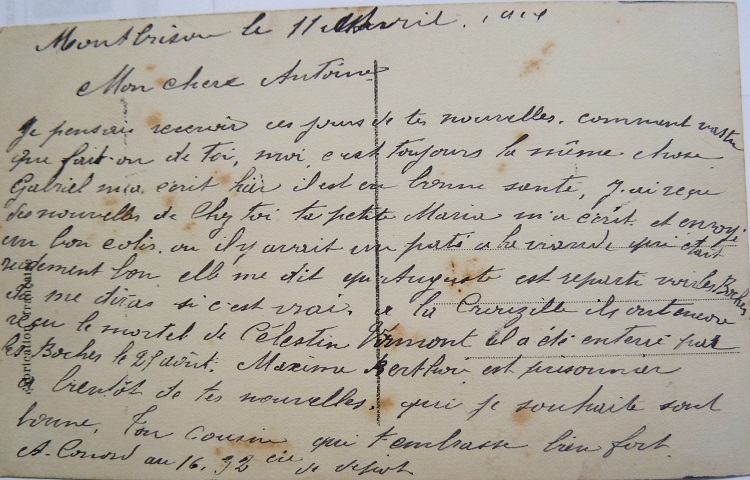 Montbrison le 11 Avril. 191
Mon chere Antoine
Je pensais recevoir ces jours de tes nouvelles. comment vas tu
que fait-on de toi, moi, c'est toujours la même chose
Gabriel m'a écrit hier il est en bonne santé, J'ai reçu
des nouvelles de Chez toi ta petite Maria m'a écrit et envoyé
un bon colis. ou il y avait un paté a la viande qui était
rudement bon elle me dit qu'Auguste est reparti voir les Boches
tu me diras si c'est vrai. a la Creuzille ils ont encore
reçu le mortel de Célestin il a été enterré par
les Boches le 29 août. Maxime est prisonnier
a bientôt de tes nouvelles. que je souhaite sont
bonne. Ton cousin qui t'embrasse bien fort.
A. au 16. 32 cie de dépot
Fabrication